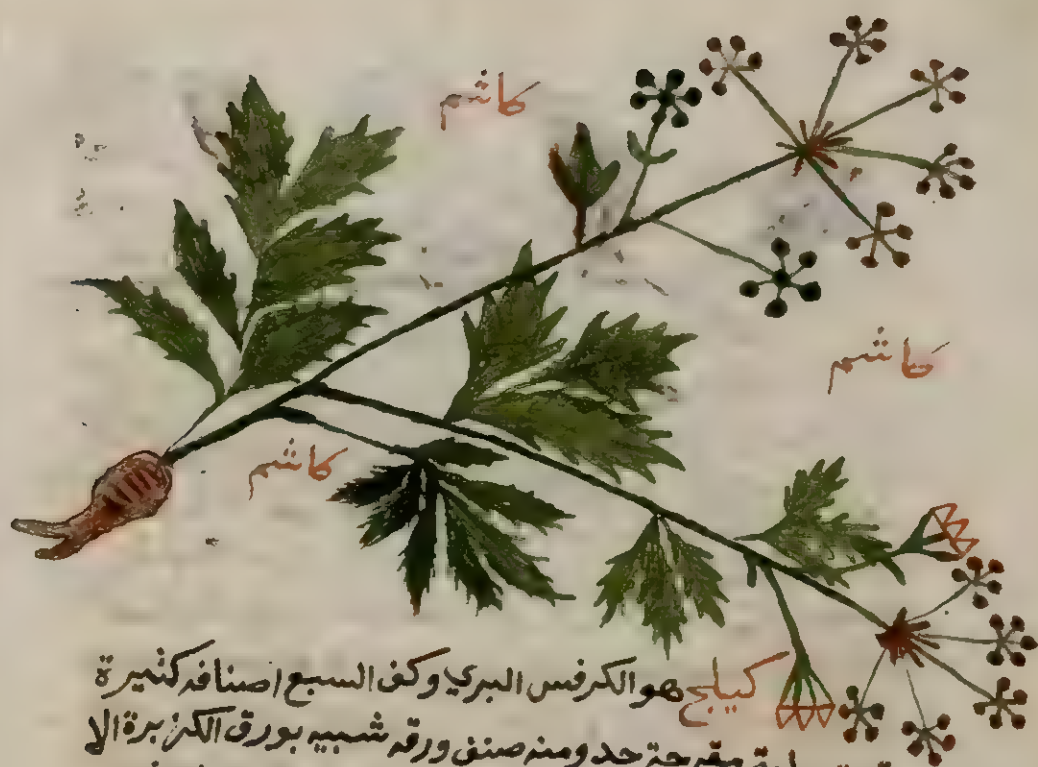 كاشم
كاشم
كاشم
كيلج هو الكرفس البري وكف السبع اصنافه كثيرة
حد ومنه صنف ورقه شبيه بورق الكزبرة الا